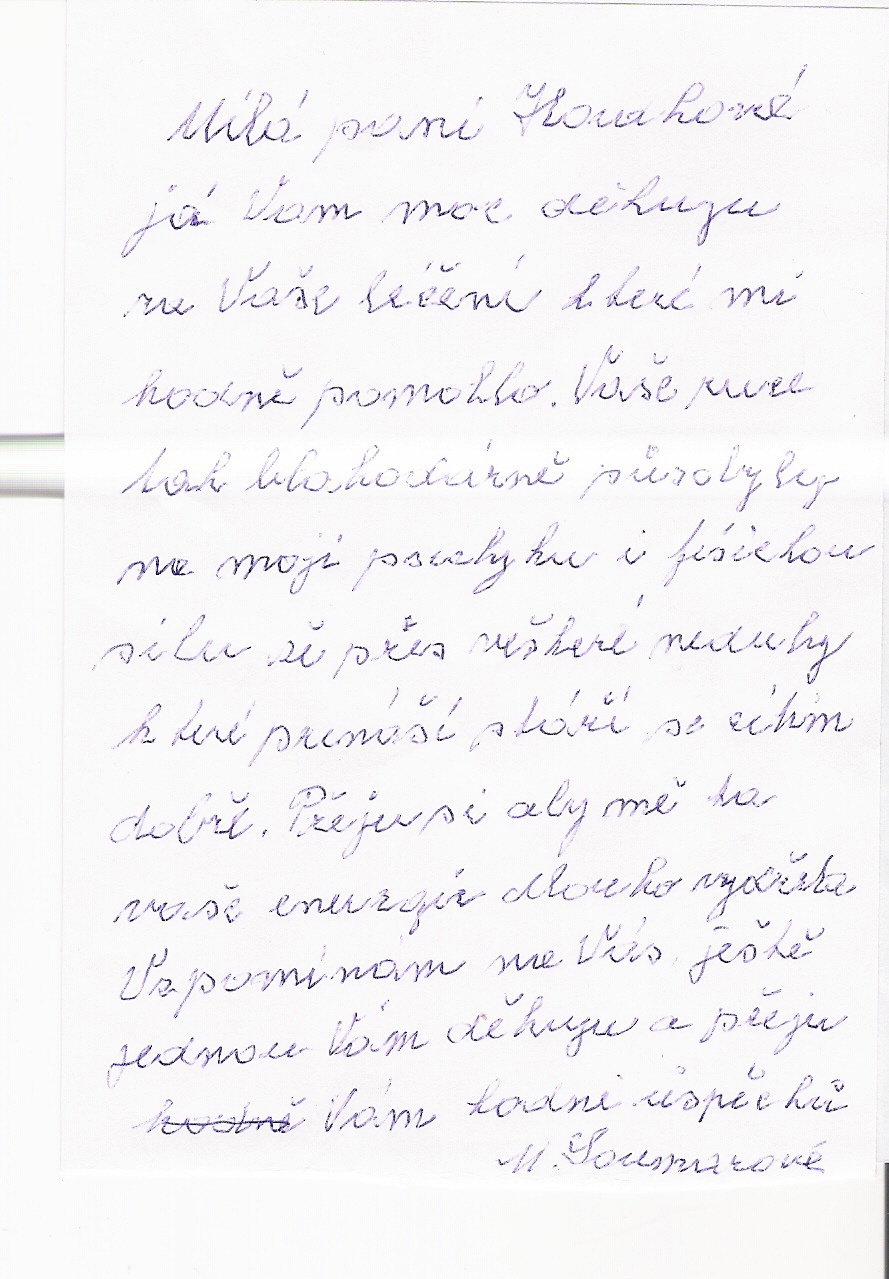 Milá paní Kouková
já Vam moc děkuju
za Vaše léčéní které mi
hodně pomohlo. Vaše ruce
tak blahodárně působyly
na moji psichyku i fisickou
sílu že přes veškeré neduhy
které prináší stáří se cítím
dobře. Přeju si aby mě ta
vaše energie dlouho vydržela
Vzpomínám na Vás. ještě
jednou Vám děkuju a přeju
hodně Vám hodně úspěchů
M.